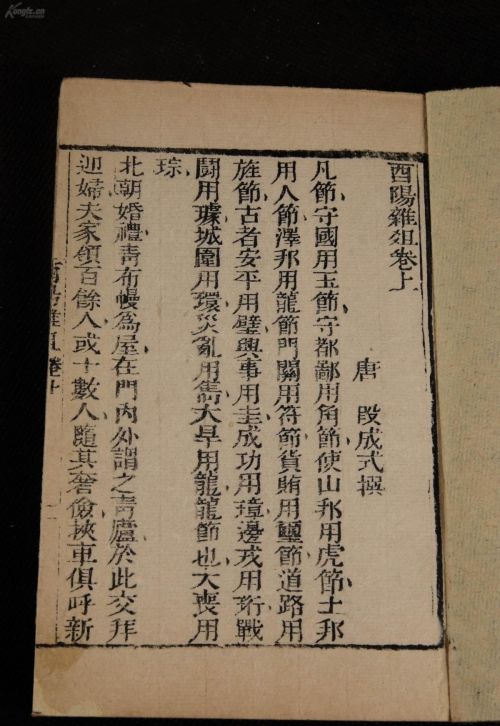 酉陽雜俎卷上
唐 段成式撰
凡節守國用玉節守都鄙用角節使山邦用虎節土邦
用人節澤邦用龍節門關用符節貨賄用璽節道路用
旌節古者安平用璧興事用圭成功用璋邊戎用珩戰
鬪用璩城圍用環災亂用雋大旱用龍龍節也大喪用
琮
北朝婚禮青布幔為屋在門內外謂之青廬於此交拜
迎婦夫家領百餘人或十數人隨其奢儉挾車俱呼新
Kongfz.cn